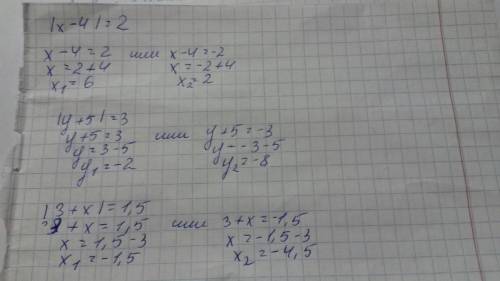 |x-4|=2
x-4=2 или x-4=-2
x=2+4 x=-2+4
x₁=6 x₂=2
|y+5|=3
y+5=3 или y+5=-3
y=3-5 y--3-5
y₁=-2 y₂=-8
|3+x|=1,5
3+x=1,5 или 3+x=-1,5
x=1,5-3 x=-1,5-3
x₁=-1,5 x₂=-4,5